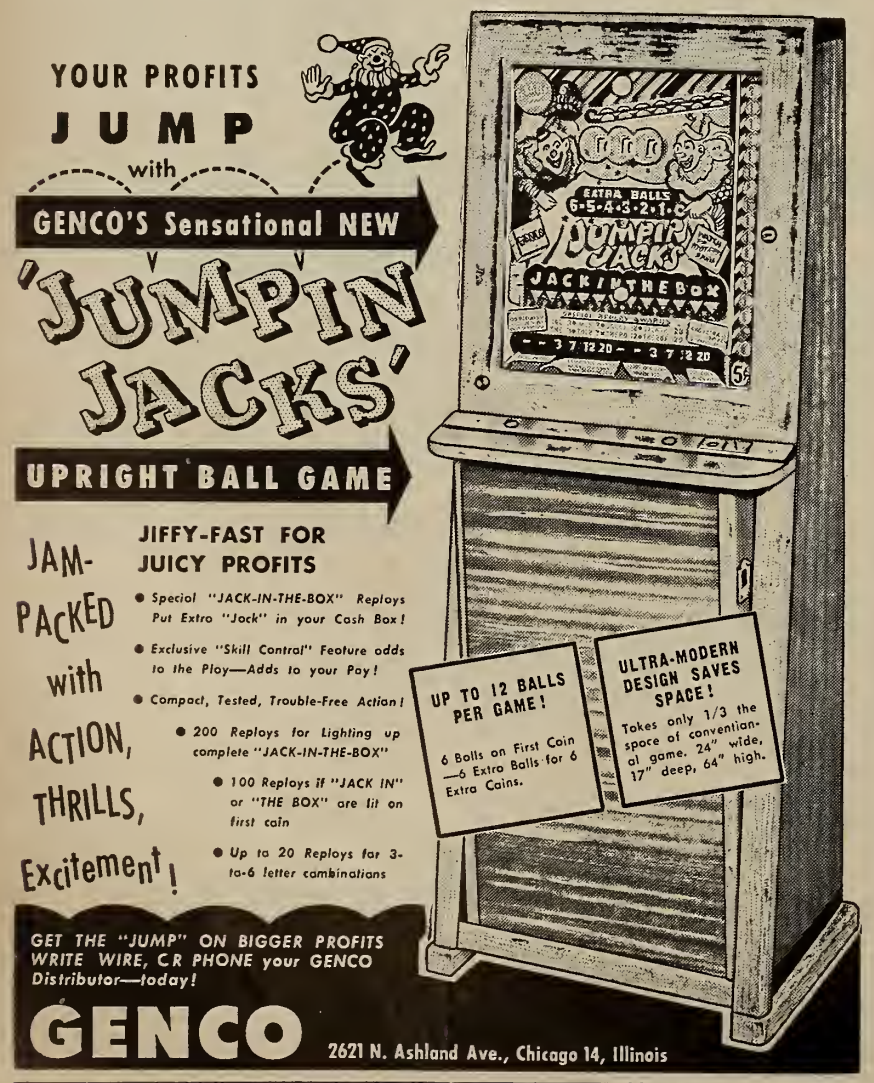 YOUR PROFITS
JUMP
with
GENCO'S Sensational NEW
'JUMPIN
JACKS'
UPRIGHT BALL GAME
JAM-
PACKED
with
ACTION,
THRILLS,
Excitement!
JIFFY-FAST FOR
JUICY PROFITS
● Special "JACK-IN-THE-BOX" Replays
Put Extra "Jack" in your Cash Box!
● Exclusive "Skill Control" Feature adds
to the Play—Adds to your Pay!
● Compact, Tested, Trouble-Free Action!
● 200 Replays for Lighting up
complete "JACK-IN-THE-BOX"
● 100 Replays if "JACK IN"
or "THE BOX" are lit on
first coin
● Up to 20 Replays for 3-
to-6 letter combinations
EXTRA BALLS
6-5-4-3-2-1-
GENCO
JUMPIN
JACKS
JACK IN THE BOX
SPECIAL REPLAY AWARDS
- - 3 7 12 20 - - 3 7 12 20
5¢
UP TO 12 BALLS
PER GAME!
6 Balls on First Coin
—6 Extra Balls for 6
Extra Coins.
ULTRA-MODERN
DESIGN SAVES
SPACE!
Takes only 1/3 the
space of convention-
al game. 24" wide,
17" deep, 64" high.
GET THE "JUMP" ON BIGGER PROFITS
WRITE WIRE, OR PHONE your GENCO
Distributor—today!
GENCO
2621 N. Ashland Ave., Chicago 14, Illinois